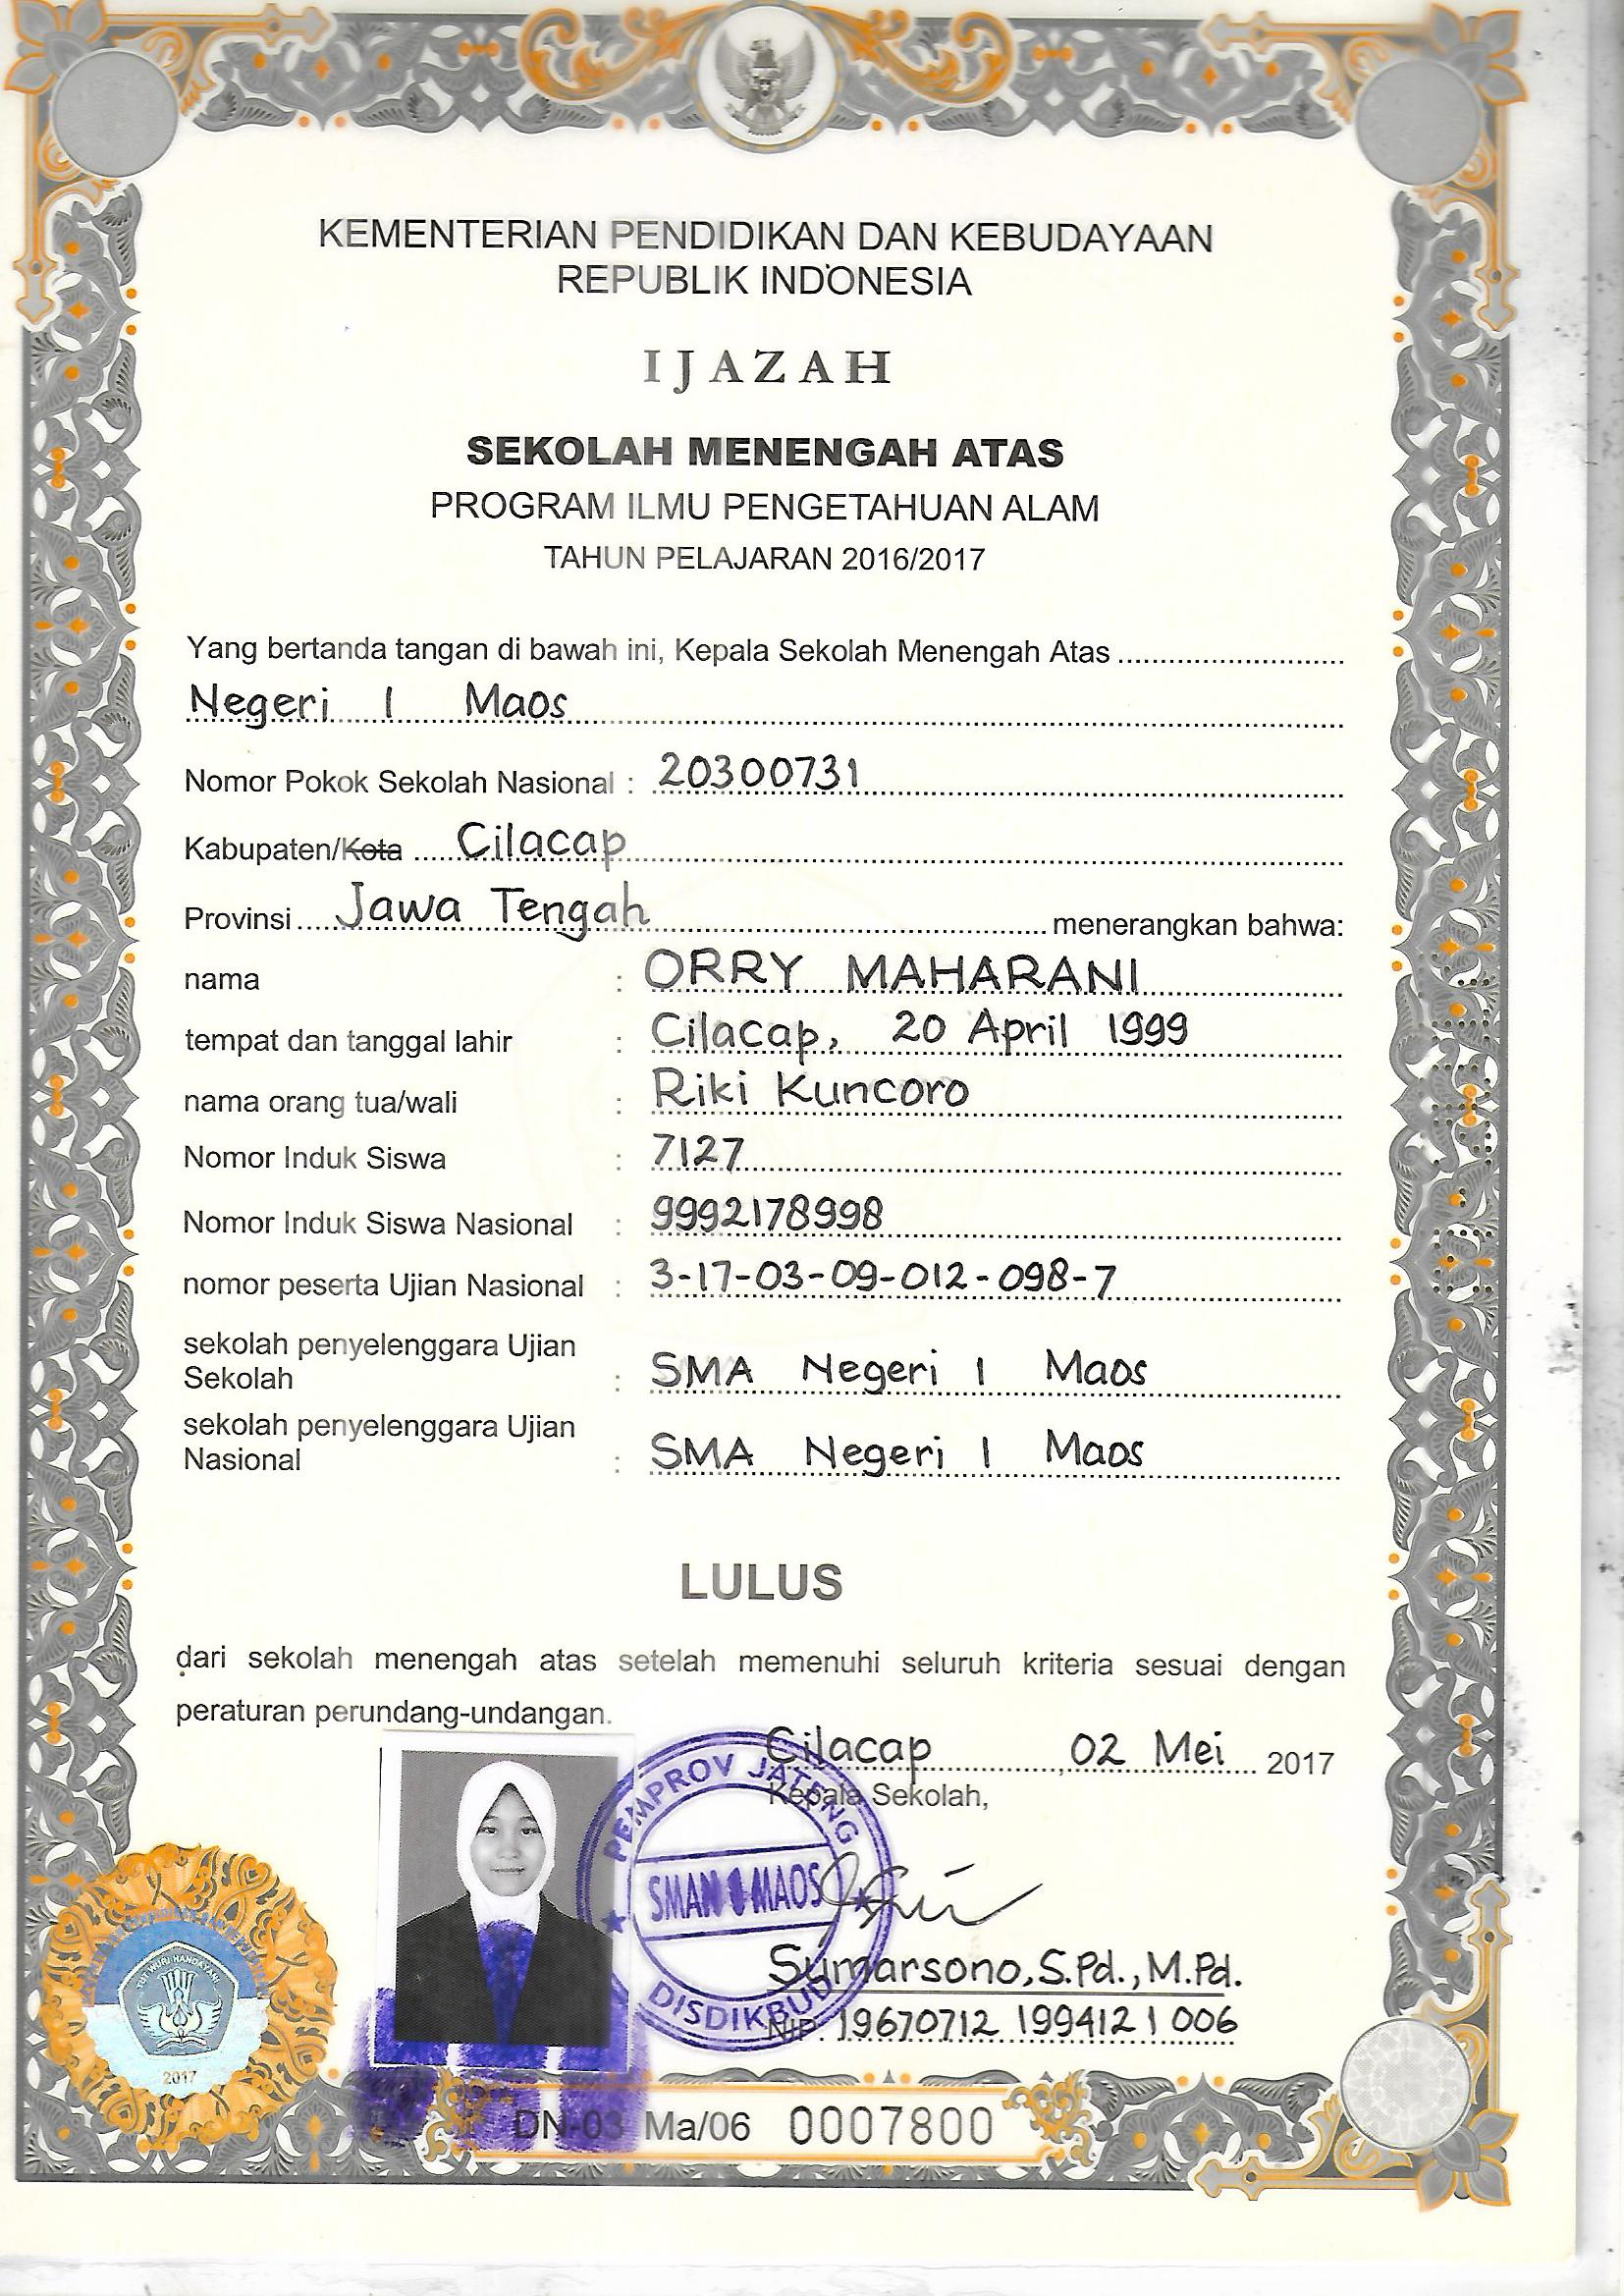 KEMENTERIAN PENDIDIKAN DAN KEBUDAYAAN
REPUBLIK INDONESIA
IJAZAH
SEKOLAH MENENGAH ATAS
PROGRAM ILMU PENGETAHUAN ALAM
TAHUN PELAJARAN 2016/2017
Yang bertanda tangan di bawah ini, Kepala Sekolah Menengah Atas
Negeri 1 Maos
Nomor Pokok Sekolah Nasional : 20300731
Kabupaten/Kota Cilacap
Provinsi Jawa Tengah menerangkan bahwa:
nama : ORRY MAHARANI
tempat dan tanggal lahir : Cilacap, 20 April 1999
nama orang tua/wali : Riki Kuncoro
Nomor Induk Siswa : 7127
Nomor Induk Siswa Nasional : 9992178998
nomor peserta Ujian Nasional : 3-17-03-09-012-098-7
sekolah penyelenggara Ujian
Sekolah : SMA Negeri 1 Maos
sekolah penyelenggara Ujian
Nasional : SMA Negeri 1 Maos
LULUS
dari sekolah menengah atas setelah memenuhi seluruh kriteria sesuai dengan
peraturan perundang-undangan.
Cilacap, 02 Mei 2017
Kepala Sekolah,
PEMPROV JATENG
SMAN 1 MAOS
DISDIKBUD
Sumarsono, S.Pd., M.Pd.
NIP. 19670712 199412 1 006
TUT WURI HANDAYANI
2017
DN-03 Ma/06 0007800